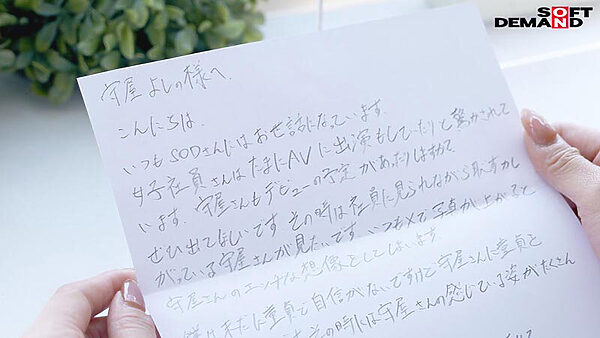 SOFT
DEMAND
守屋よしの様へ
こんにちは、
いつもSODさんにはお世話になっています。
女子社員さんはたまにAVに出演もしていたりと驚かされて
います。守屋さんもデビューの予定があったりはすので
ぜひ出てほしいです その時は社員に見られながら恥ずかし
がっている守屋さんが見たいです いつもXで写真が上がると
守屋さんのエッチな想像をしてしまいます。
僕は未だに童貞で自信がないですけど守屋さんに童貞を
その時には守屋さんの感じている姿がたくさん